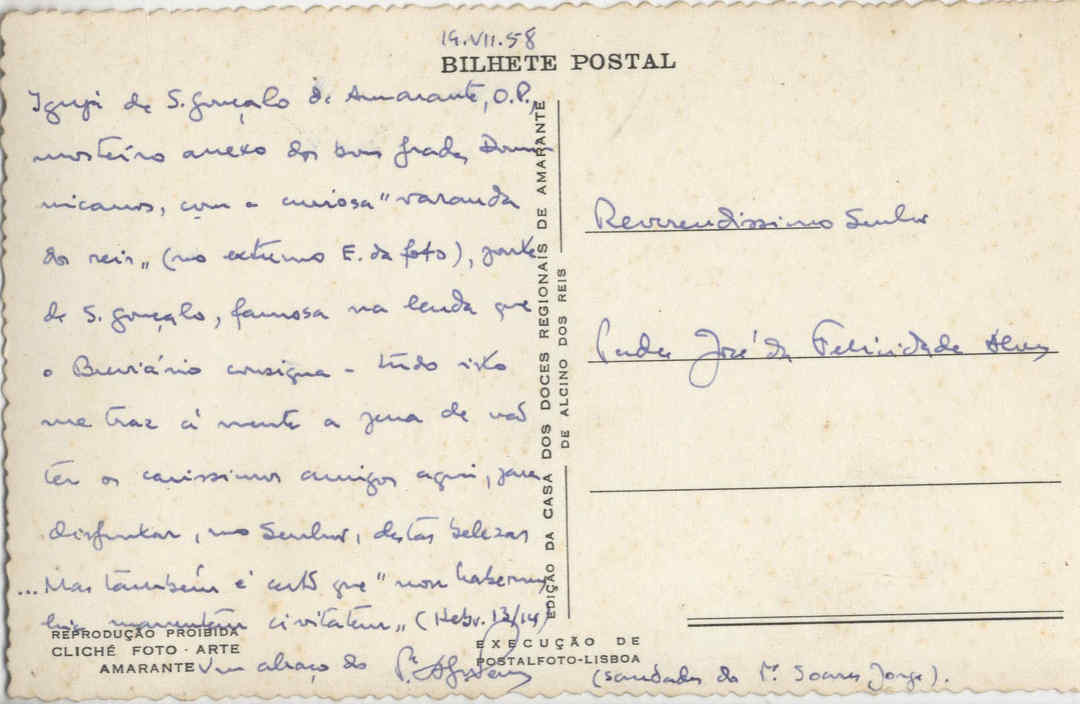 19.VII.58
BILHETE POSTAL
Igreja de S. Gonçalo de Amarante, O.P.,
mosteiro anexo dos bons frades Domi-
nicanos, com a curiosa "varanda
dos reis" (no extremo E. da foto), ponte
de S. Gonçalo, famosa na lenda que
o Breviário consigna - tudo isto
me traz à mente a pena de não
ter os caríssimos amigos aqui, para
disfrutar, no Senhor, destas belezas
... Mas também é certo que "non habemus
hic manentem civitatem" (Hebr. 13/14)
Um abraço do P.e
REPRODUÇÃO PROIBIDA
CLICHÉ FOTO · ARTE
AMARANTE
EDIÇÃO DA CASA DOS DOCES REGIONAIS DE AMARANTE
DE ALCINO DOS REIS
EXECUÇÃO DE
POSTALFOTO-LISBOA
Reverendíssimo Senhor
Padre José da Felicidade Alves
(saudades do P.e Soares Jorge).